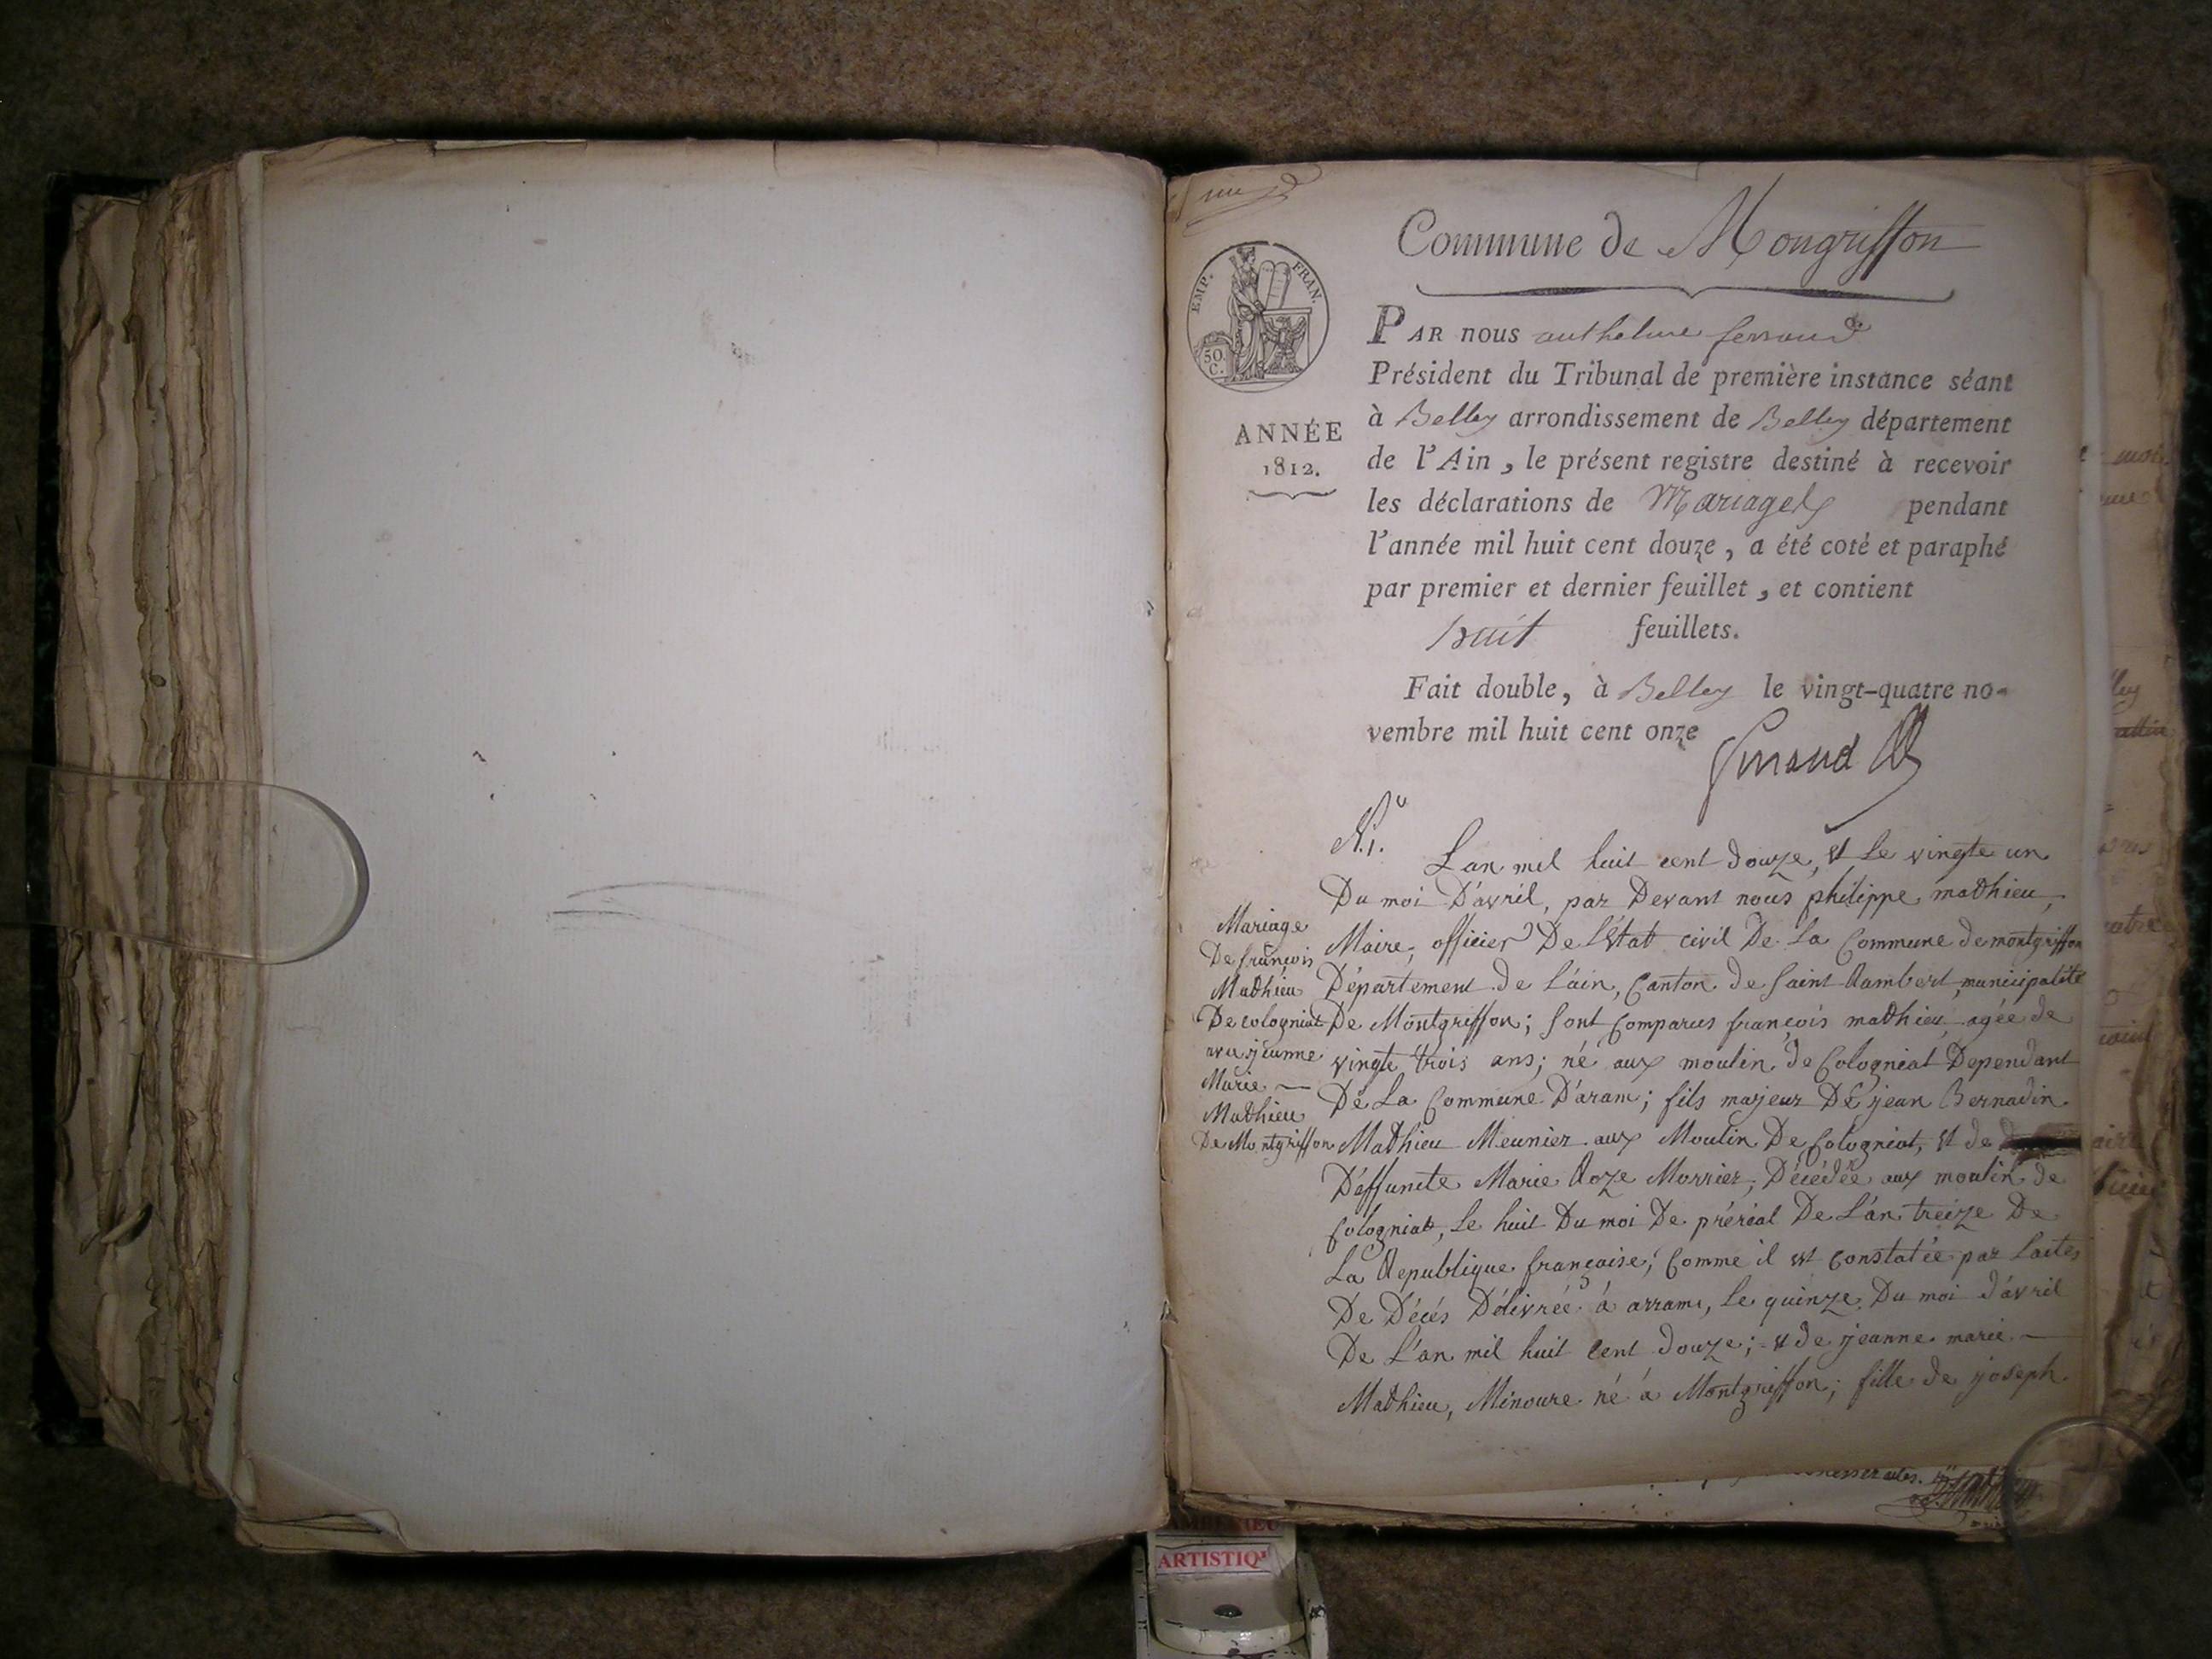 Commune de Mongriffon
EMP. FRAN.
50
C.
ANNÉE
1812.
PAR nous anthelme ferrand
Président du Tribunal de première instance séant
à Belley arrondissement de Belley département
de l'Ain, le présent registre destiné à recevoir
les déclarations de Mariages pendant
l'année mil huit cent douze, a été coté et paraphé
par premier et dernier feuillet, et contient
huit feuillets.
Fait double, à Belley le vingt-quatre no-
vembre mil huit cent onze
N.1.
Mariage
De françois
Mathieu
De cologniat
avec jeanne
Marie
Mathieu
De Montgriffon
L'an mil huit cent douze, et le vingte un
Du moi D'avril, par Devant nous philippe mathieu,
Maire, officier De L'état civil De La Commune de montgriffon
Département de L'áin, Canton de Saint Rambert, municipalité
De Montgriffon; sont Comparus françois mathieu, agée de
vingte trois ans; né aux moulin de Cologniat Dependant
De La Commune D'aram; fils majeur De jean Bernadin
Mathieu Meunier aux Moulin De Cologniat, et de
Deffuncte Marie Roze Morrier, Décédée aux moulin de
Cologniat, Le huit Du moi De préréal De L'an treize De
La Republique française, Comme il est Constatée par Lactes
De Décés Délivrée á arram, Le quinze Du moi d'avril
De L'an mil huit Cent Douze; et de jeanne marie
Mathieu, Minoure né á Montgriffon; fille de joseph
ARTISTIQ